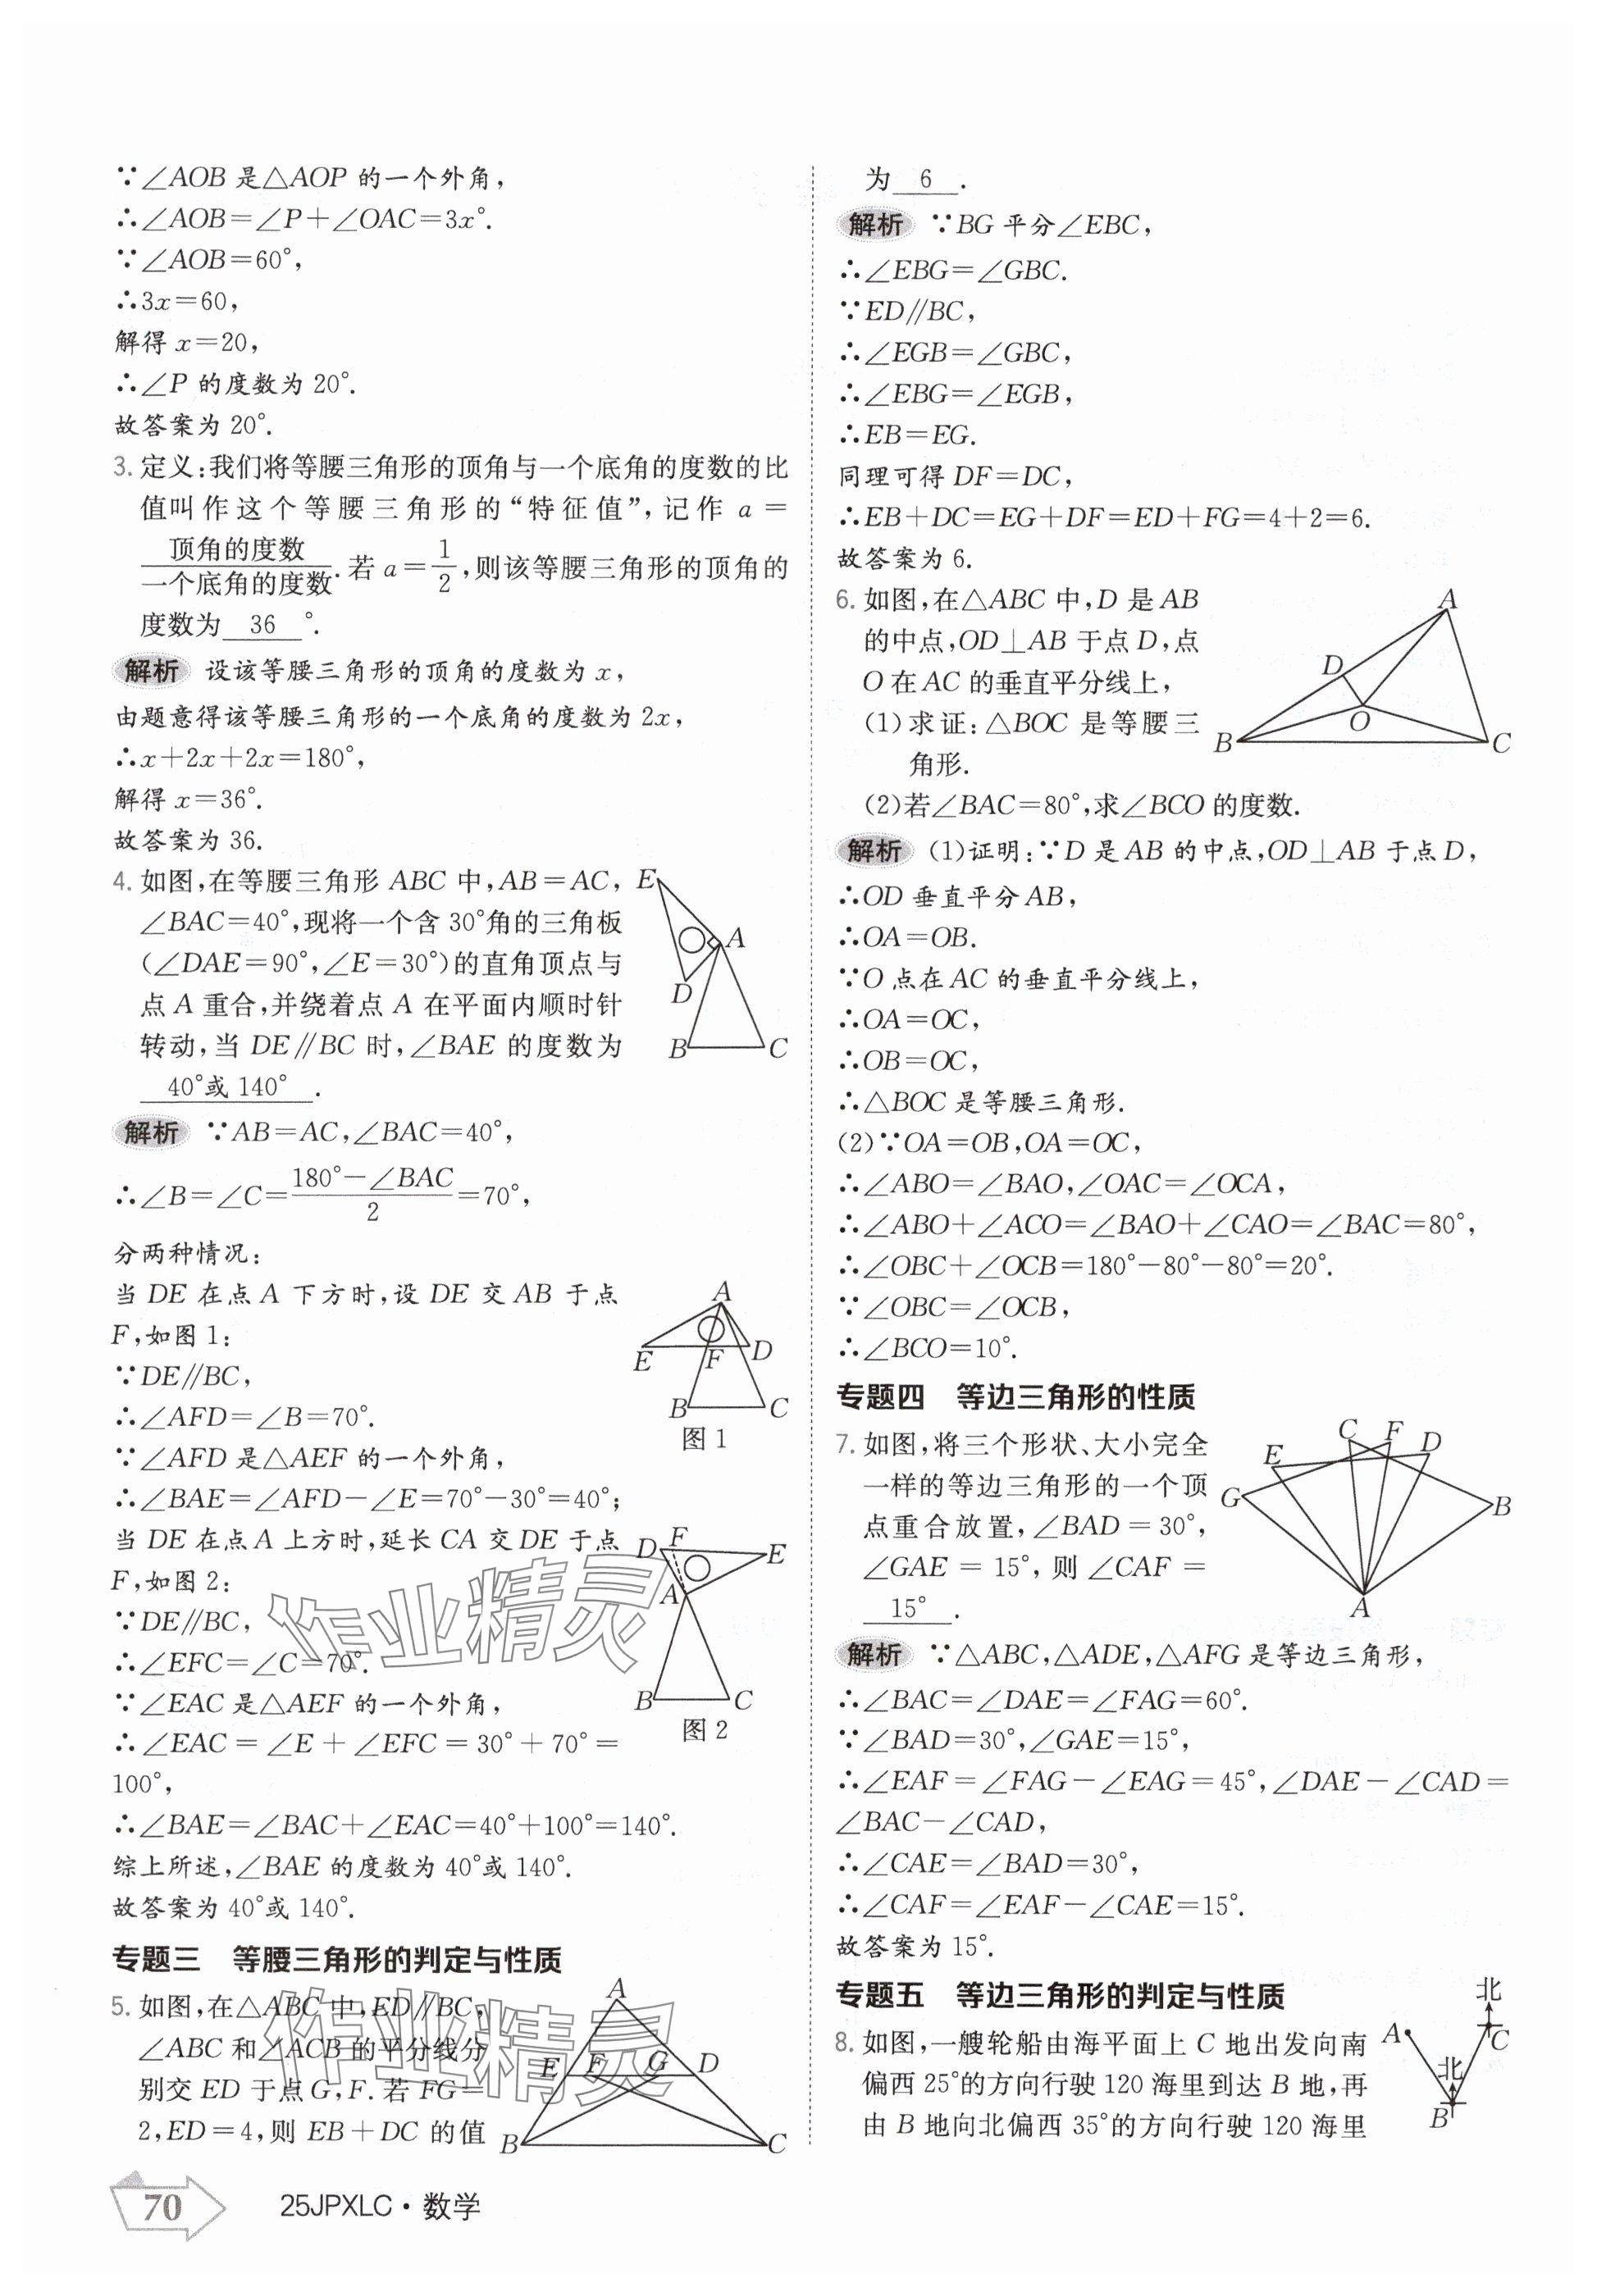 ∵∠AOB 是△AOP 的一个外角，
∴∠AOB＝∠P＋∠OAC＝3x°.
∵∠AOB＝60°，
∴3x＝60，
解得 x＝20，
∴∠P 的度数为 20°.
故答案为 20°.
3. 定义：我们将等腰三角形的顶角与一个底角的度数的比
值叫作这个等腰三角形的“特征值”，记作 a＝
顶角的度数/一个底角的度数.若 a＝1/2，则该等腰三角形的顶角的
度数为 36 °.
解析 设该等腰三角形的顶角的度数为 x，
由题意得该等腰三角形的一个底角的度数为 2x，
∴x＋2x＋2x＝180°，
解得 x＝36°.
故答案为 36.
4. 如图，在等腰三角形 ABC 中，AB＝AC，
∠BAC＝40°，现将一个含 30°角的三角板
（∠DAE＝90°，∠E＝30°）的直角顶点与
点 A 重合，并绕着点 A 在平面内顺时针
转动，当 DE∥BC 时，∠BAE 的度数为
40°或 140° .
E
A
D
B
C
解析 ∵AB＝AC，∠BAC＝40°，
∴∠B＝∠C＝(180°－∠BAC)/2＝70°，
分两种情况：
当 DE 在点 A 下方时，设 DE 交 AB 于点
F，如图 1：
∵DE∥BC，
∴∠AFD＝∠B＝70°.
∵∠AFD 是△AEF 的一个外角，
∴∠BAE＝∠AFD－∠E＝70°－30°＝40°；
A
E
F
D
B
C
图 1
当 DE 在点 A 上方时，延长 CA 交 DE 于点
F，如图 2：
∵DE∥BC，
∴∠EFC＝∠C＝70°.
∵∠EAC 是△AEF 的一个外角，
∴∠EAC＝∠E＋∠EFC＝30°＋70°＝
100°，
∴∠BAE＝∠BAC＋∠EAC＝40°＋100°＝140°.
综上所述，∠BAE 的度数为 40°或 140°.
故答案为 40°或 140°.
D
F
E
A
B
C
图 2
作业精灵
专题三 等腰三角形的判定与性质
5. 如图，在△ABC 中，ED∥BC，
∠ABC 和∠ACB 的平分线分
别交 ED 于点 G，F. 若 FG＝
2，ED＝4，则 EB＋DC 的值
A
E
F
G
D
B
C
作业精灵
为 6 .
解析 ∵BG 平分∠EBC，
∴∠EBG＝∠GBC.
∵ED∥BC，
∴∠EGB＝∠GBC，
∴∠EBG＝∠EGB，
∴EB＝EG.
同理可得 DF＝DC，
∴EB＋DC＝EG＋DF＝ED＋FG＝4＋2＝6.
故答案为 6.
6. 如图，在△ABC 中，D 是 AB
的中点，OD⊥AB 于点 D，点
O 在 AC 的垂直平分线上，
（1）求证：△BOC 是等腰三
角形.
（2）若∠BAC＝80°，求∠BCO 的度数.
A
D
O
B
C
解析 （1）证明：∵D 是 AB 的中点，OD⊥AB 于点 D，
∴OD 垂直平分 AB，
∴OA＝OB.
∵O 点在 AC 的垂直平分线上，
∴OA＝OC，
∴OB＝OC，
∴△BOC 是等腰三角形.
（2）∵OA＝OB，OA＝OC，
∴∠ABO＝∠BAO，∠OAC＝∠OCA，
∴∠ABO＋∠ACO＝∠BAO＋∠CAO＝∠BAC＝80°，
∴∠OBC＋∠OCB＝180°－80°－80°＝20°.
∵∠OBC＝∠OCB，
∴∠BCO＝10°.
专题四 等边三角形的性质
7. 如图，将三个形状、大小完全
一样的等边三角形的一个顶
点重合放置，∠BAD＝30°，
∠GAE ＝ 15°，则 ∠CAF ＝
15° .
C
F
D
E
G
B
A
解析 ∵△ABC，△ADE，△AFG 是等边三角形，
∴∠BAC＝∠DAE＝∠FAG＝60°.
∵∠BAD＝30°，∠GAE＝15°，
∴∠EAF＝∠FAG－∠EAG＝45°，∠DAE－∠CAD＝
∠BAC－∠CAD，
∴∠CAE＝∠BAD＝30°，
∴∠CAF＝∠EAF－∠CAE＝15°.
故答案为 15°.
专题五 等边三角形的判定与性质
8. 如图，一艘轮船由海平面上 C 地出发向南
偏西 25°的方向行驶 120 海里到达 B 地，再
由 B 地向北偏西 35°的方向行驶 120 海里
北
A
C
北
B
70
25JPXLC·数学